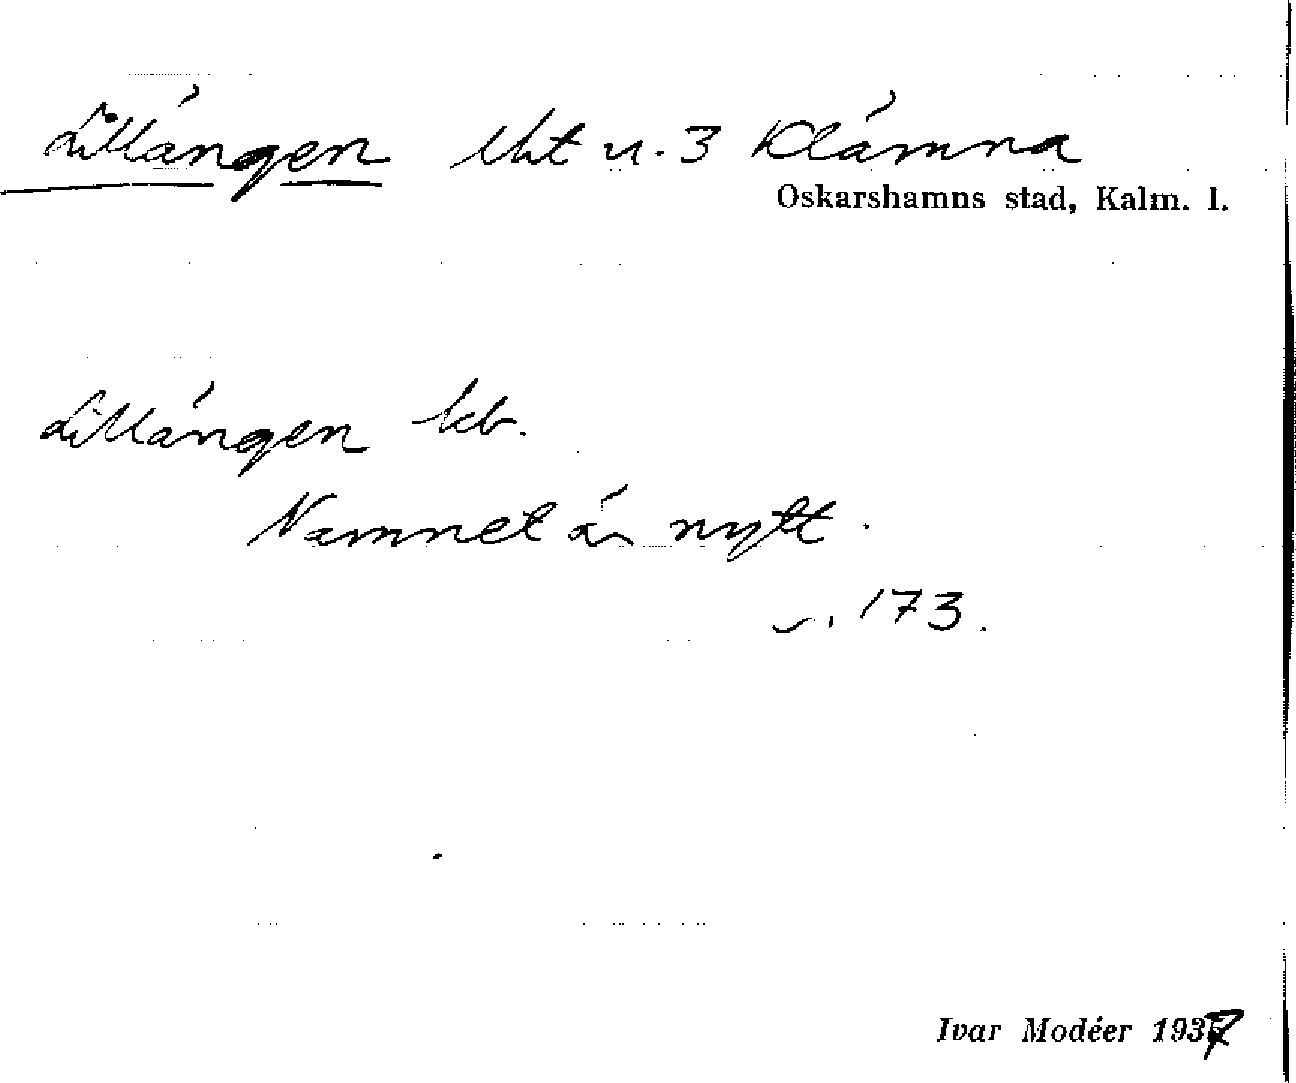 Lillängen lht u. 3 Klämna
Oskarshamns stad, Kalm. l.
Lillängen kb.
Namnet är nytt.
s. 173.
Ivar Modéer 1937